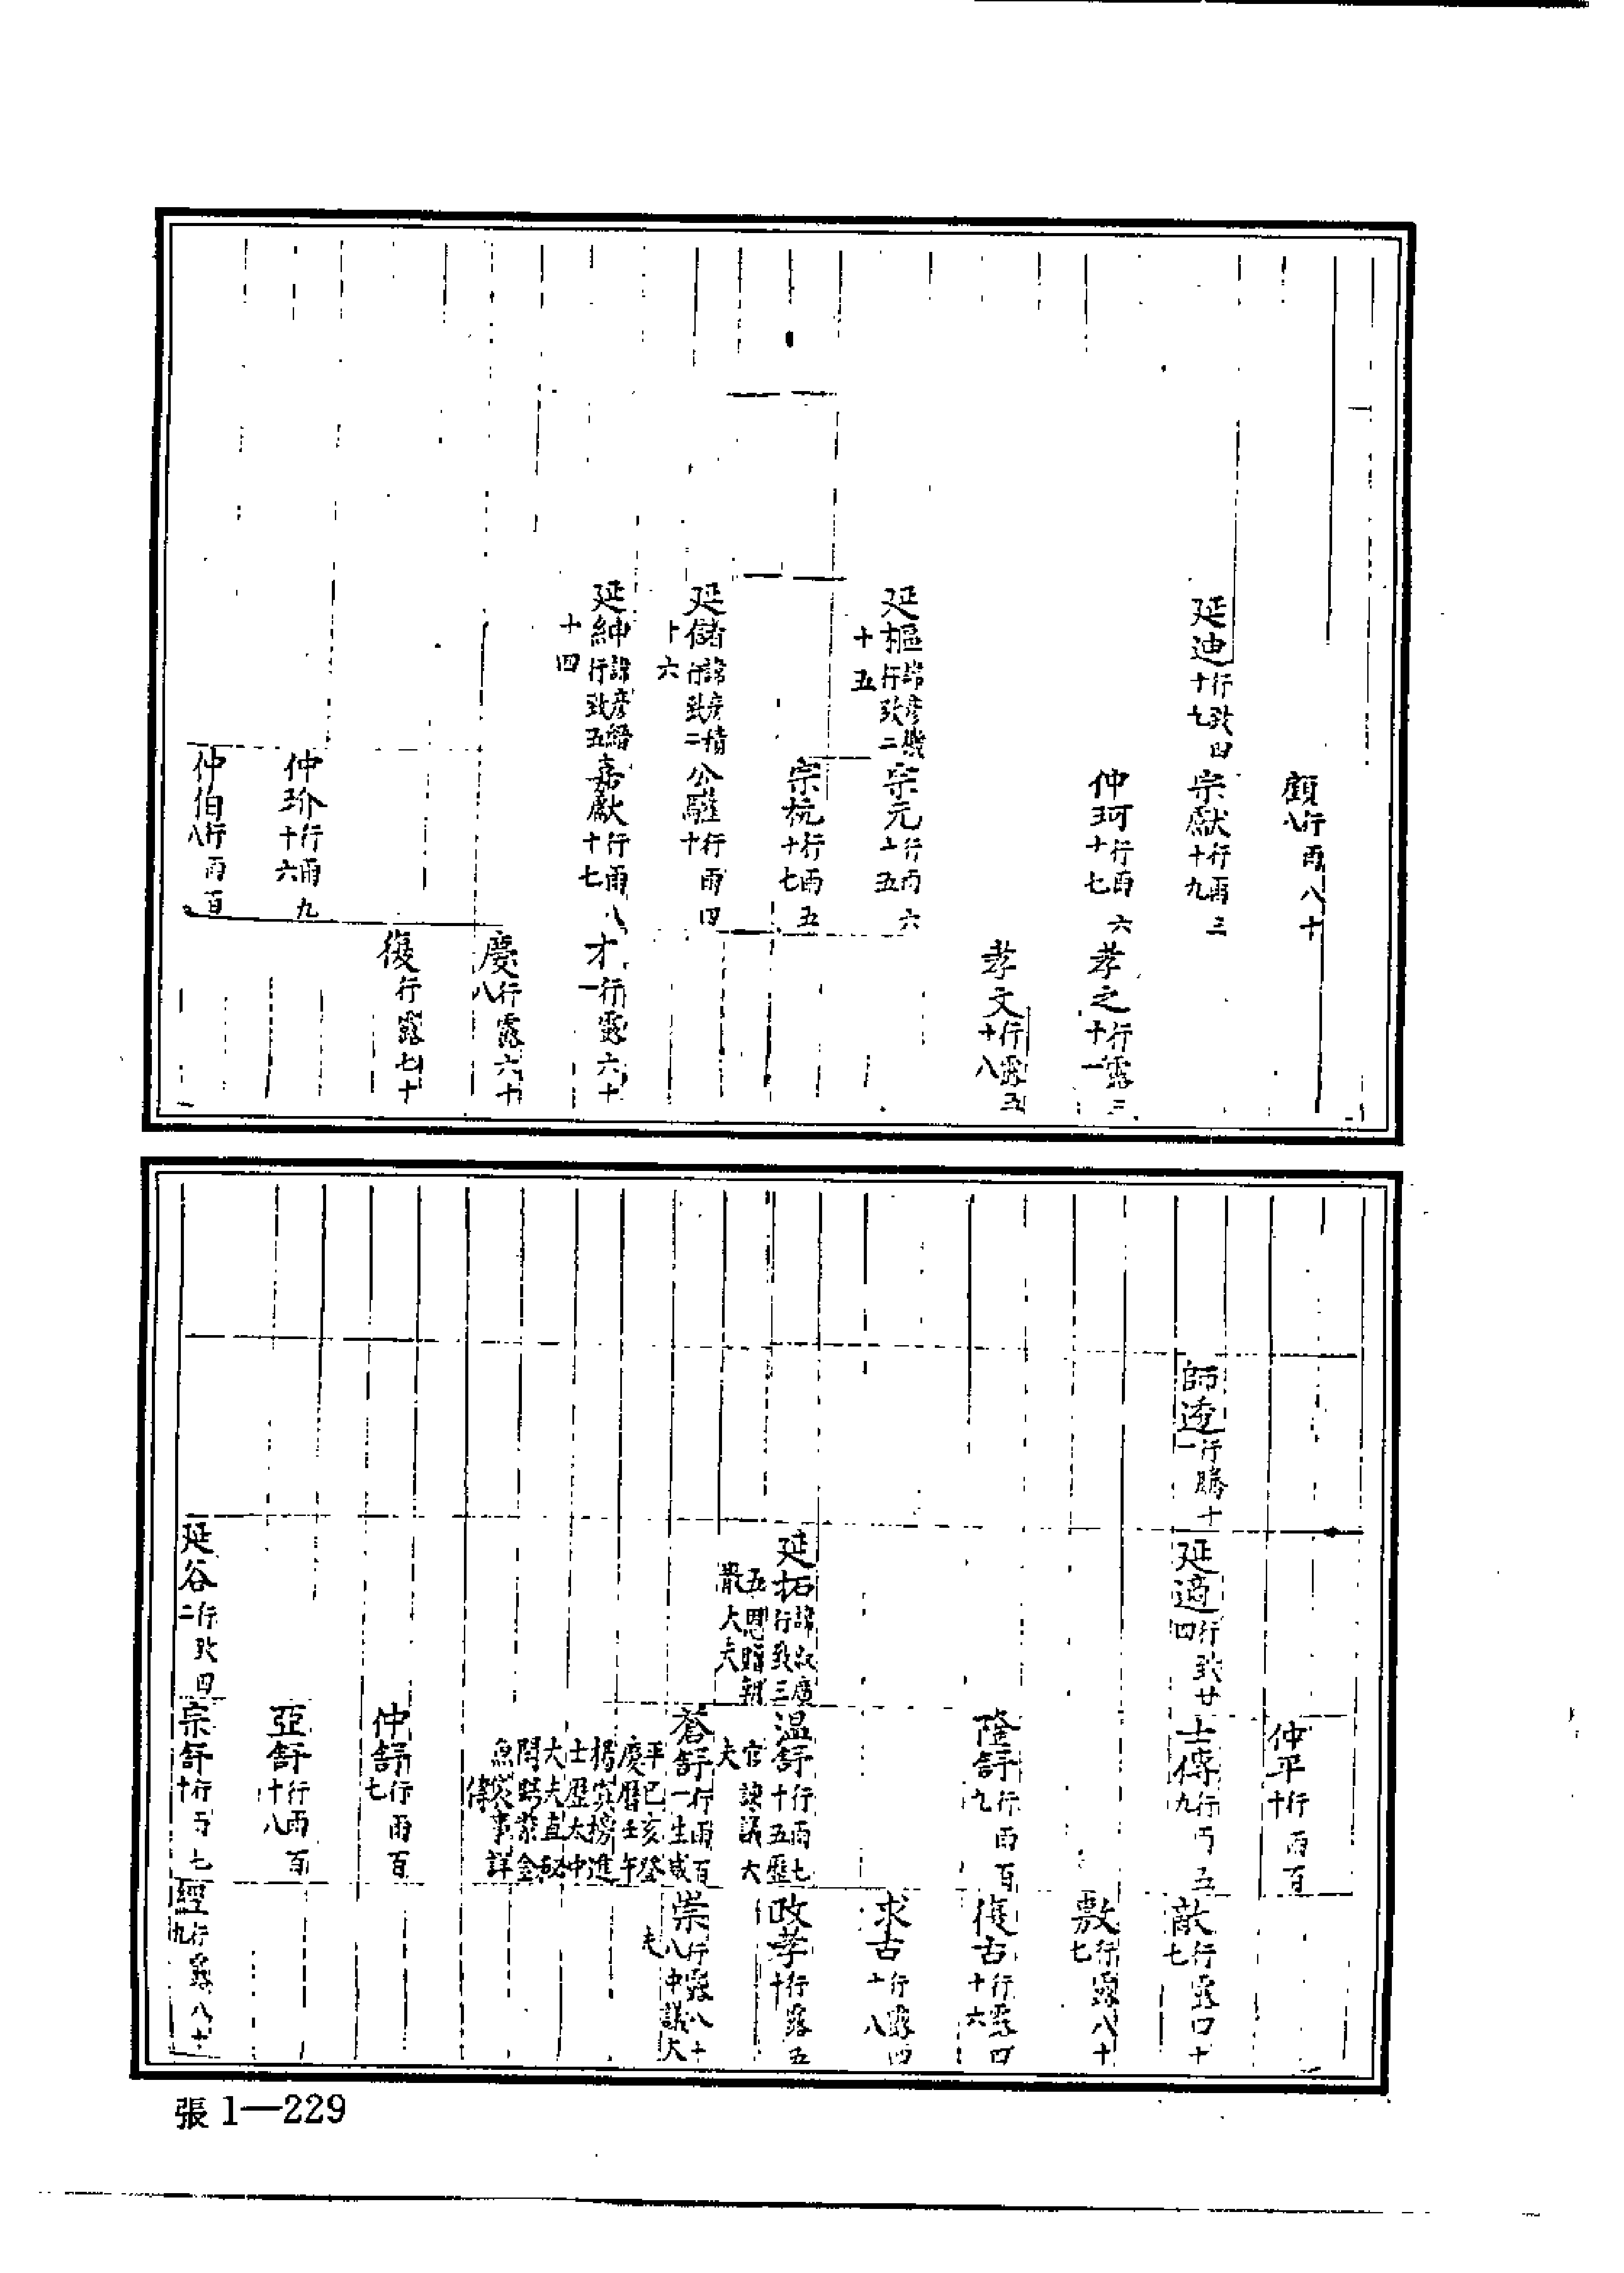 顧行雨八十八
延迪行致四十七
宗獻行雨三十九
仲珂行雨六十七
孝之行露三十一
孝文行露五十八
延樞諱彥機行致二十五
宗元行雨六十五
宗杭行雨五十七
延儲諱彥積行致二十六
公驥行雨四十
延紳諱彥縉行致五十四
嘉獻行雨八十七
才行露六十一
慶行露六十八
復行露七十
仲玠行雨九十六
仲伯行雨百八
仲平行雨百十
師逵行勝十一
延適行致廿四
士傳行雨五九
敵行露四十七
敷行露八十七
隆舒行雨百九
復古行露四十六
求古行露四十八
延拓諱叔廣行致三五恩贈朝散大夫
溫舒行雨七十五歷官諫議大夫
政孝行露五十
蒼舒行雨百一生咸平己亥登慶曆壬午楊寘榜進士歷太中大夫直秘閣賜紫金魚袋事詳傳
崇行露八十八中議大夫
仲舒行雨百七
亞舒行雨百十八
延谷行致四二
宗舒行雨七十
經行露八十九
張1—229